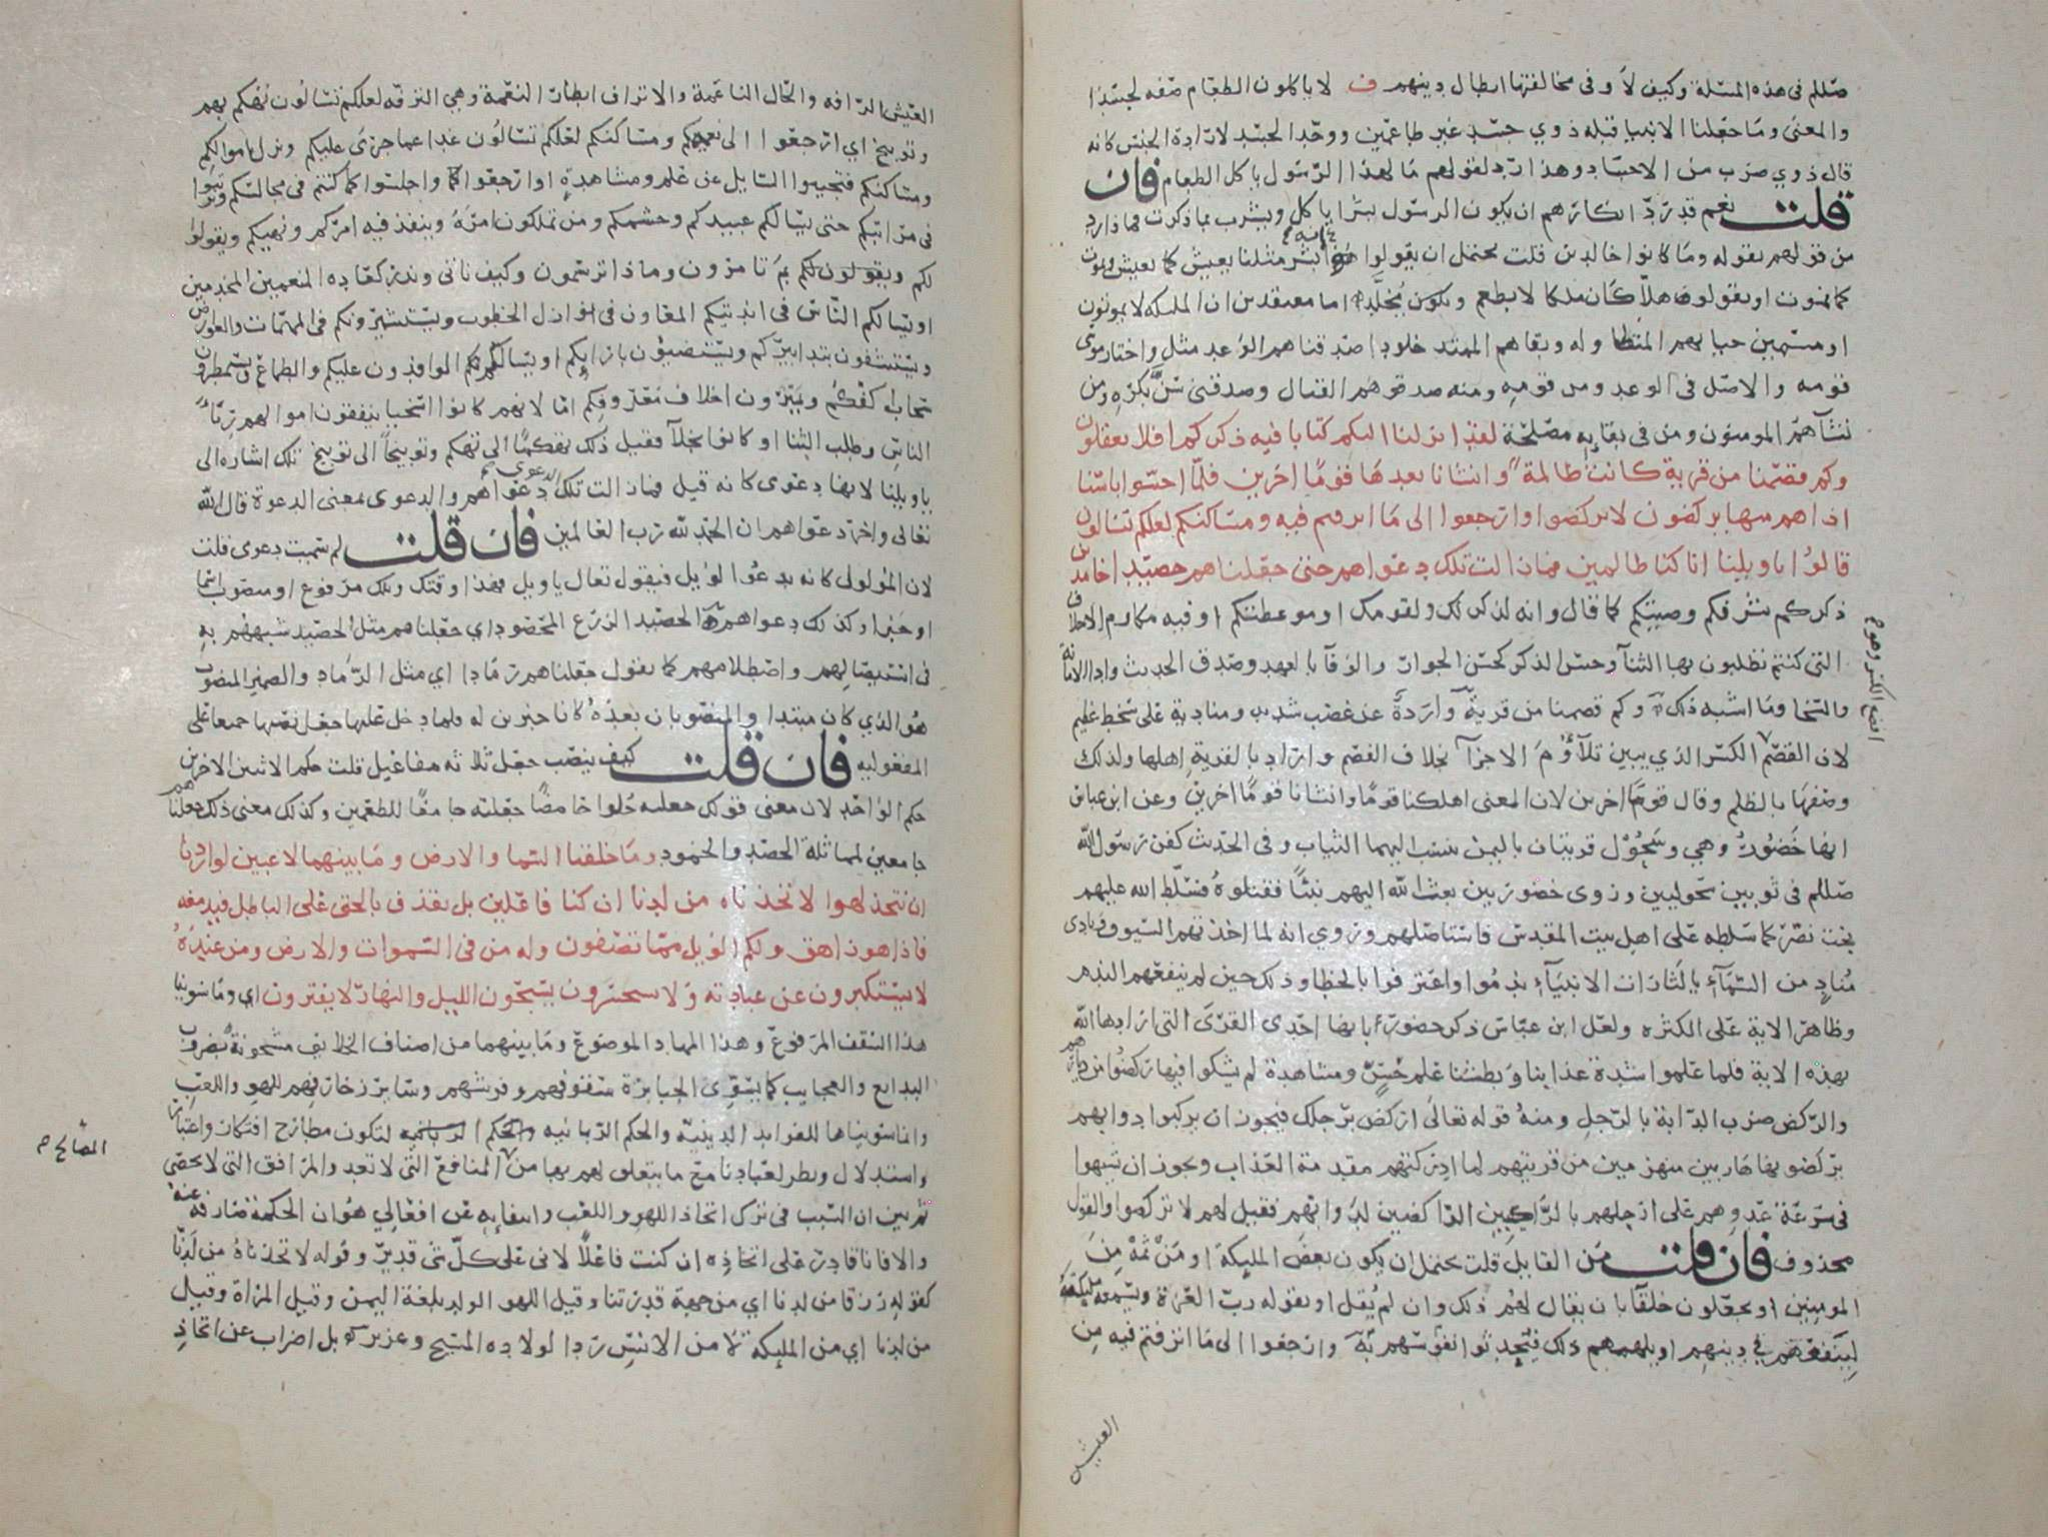 صللم فى هذه المسلة وكيف لا وفى مخالفتها ابطال دينهم ف لا ياكلون الطعام صفه لجسدا
والمعنى وما جعلنا الانبيا قبله ذوي جسد غير طاعمين ووحد الجسد لارادة الجنس كانه
قال ذوي ضرب من الاجساد وهذا رد لقولهم ما لهذا الرسول ياكل الطعام فان
قلت نعم قد رد انكارهم ان يكون الرسول بشرا ياكل ويشرب بما ذكرت فماذا رد
من قولهم بقوله وما كانوا خالدين قلت يحتمل ان يقولوا انه بشر مثلنا يعيش كما نعيش ويموت
كما نموت او يقولوا هلا كان ملكا لا يطعم ويكون مخلدا اما معتقدين ان المليكه لا يموتون
او مسمين حياتهم المتطاوله وبقاهم الممتد خلودا صدقناهم الوعد مثل واختار موسى
قومه والاصل فى الوعد ومن قومه ومنه صدقوهم القتال وصدقنى سن بكره ومن
نشآ هم المومنون ومن فى بقايه مصلحة لقد انزلنا اليكم كتابا فيه ذكركم افلا تعقلون
وكم قصمنا من قرية كانت ظالمة وانشانا بعدها قوما اخرين فلما احسوا باسنا
اذا هم منها يركضون لا تركضوا وارجعوا الى ما اترفتم فيه ومساكنكم لعلكم تسالون
قالوا يا ويلنا انا كنا ظالمين فما زالت تلك دعواهم حتى جعلناهم حصيدا خامدين
ذكركم شرفكم وصيتكم كما قال وانه لذكر لك ولقومك او موعظتكم او فيه مكارم الاخلاق
التى كنتم تطلبون بها الثنآ وحسن الذكر كحسن الجوار والوفآ بالعهد وصدق الحديث وادا الامانة
والسخا وما اشبه ذلك وكم قصمنا من قرية واردة عن غضب شديد ومنادية على سخط عظيم
لان القصم الكسر الذي يبين تلاؤم الاجزآ بخلاف الفصم واراد بالقرية اهلها ولذلك
وصفها بالظلم وقال قوما اخرين لان المعنى اهلكنا قوما وانشانا قوما اخرين وعن ابن عباس
انها حضور وهي وسحول قريتان باليمن تنسب اليهما الثياب وفى الحديث كفن رسول الله
صللم فى ثوبين سحوليين وروى حضوريين بعث الله اليهم نبيا فقتلوه فسلط الله عليهم
بخت نصر كما سلطه على اهل بيت المقدس فاستاصلهم وروي انه لما اخذتهم السيوف ونادى
مناد من السمآء يا لثارات الانبيآء ندموا واعترفوا بالخطا وذلك حين لم ينفعهم الندم
وظاهر الاية على الكثره ولعل ابن عباس ذكر حضور بانها احدى القرى التى ارادها الله
بهذه الاية فلما علموا شدة عذابنا وبطشنا علم حس ومشاهدة لم يشكوا فيها ركضوا من ديارهم
والركض ضرب الدابة بالرجل ومنه قوله تعالى اركض برجلك فيجوز ان يركبوا دوابهم
يركضونها هاربين منهزمين من قريتهم لما ادركتهم مقدمة العذاب ويجوز ان شبهوا
فى سرعة عدوهم على ارجلهم بالراكبين الراكضين لدوابهم فقيل لهم لا تركضوا والقول
محذوف فان قلت من القايل قلت يحتمل ان يكون بعض المليكة او من ثمه من
المومنين او يجعلون خلقآ بان يقال لهم ذلك وان لم يقل او يقوله رب العزة ويسمعه مليكته
لينفعهم في دينهم او يلهمهم ذلك فيحدثوا به نفوسهم وارجعوا الى ما اترفتم فيه من
العيش
اقبح الكسر وهو م
العيش الرافه والحال الناعمة والاتراف ابطار النعمة وهي الترفه لعلكم تسالون تهكم بهم
وتوبيخ اي ارجعوا الى نعمتكم ومساكنكم لعلكم تسالون غدا عما جرى عليكم ونزل باموالكم
ومساكنكم فتجيبوا السايل عن علم ومشاهدة او ارجعوا كما واجلسوا كما كنتم فى مجالسكم وترتبوا
فى مراتبكم حتى يسالكم عبيدكم وحشمكم ومن تملكون امره وينفذ فيه امركم ونهيكم ويقولوا
لكم ويقولون لكم بم تامرون وماذا ترسمون وكيف ناتى ونذر كعادة المنعمين المخدمين
او يسالكم الناس فى انديتكم المعاون فى نوازل الخطوب ويستشيرونكم فى المهمات والعوارض
ويستشفون بتدابيركم ويستضيؤن بارايكم او يسالكم الوافدون عليكم والطماع ويستمطرون
سحاب كفكم ويمترون اخلاف معروفكم اما لانهم كانوا اسخيا ينفقون اموالهم رئآ
الناس وطلب الثنا او كانوا بخلآ فقيل ذلك تهكما الى تهكم وتوبيخا الى توبيخ تلك اشاره الى
يا ويلنا لانها دعوى كانه قيل فما زالت تلك الدعوى دعواهم والدعوى بمعنى الدعوة قال الله
تعالى واخر دعواهم ان الحمد لله رب العالمين فان قلت لم سميت دعوى قلت
لان المولول كانه يدعو الويل فيقول تعال يا ويل فهذا وقتك وتلك مرفوع او منصوب اسما
او خبرا وكذلك دعواهم الحصيد الزرع المحصود اي جعلناهم مثل الحصيد شبههم به
فى استيصالهم واصطلامهم كما تقول جعلناهم رمادا اي مثل الرماد والضمير المنصوب
هو الذي كان مبتدا والمنصوبان بعده كانا خبرين له فلما دخل عليها جعل نصبها جميعا على
المفعوليه فان قلت كيف ينصب جعل ثلاثه مفاعيل قلت حكم الاثنين الاخرين
حكم الواحد لان معنى قولك جعلته حلوا حامضا جعلته جامعا للطعمين وكذلك معنى ذلك جعلناهم
جامعين لمماثلة الحصد والخمود وما خلقنا السما والارض وما بينهما لاعبين لو اردنا
ان نتخذ لهوا لاتخذناه من لدنا ان كنا فاعلين بل نقذف بالحق على الباطل فيدمغه
فاذا هو زاهق ولكم الويل مما تصفون وله من فى السموات والارض ومن عنده
لا يستكبرون عن عبادته ولا يستحسرون يسبحون الليل والنهار لا يفترون اي وما سوينا
هذا السقف المرفوع وهذا المهاد الموضوع وما بينهما من اصناف الخلايق مشحونة بضروب
البدايع والعجايب كما يسوى الجبابرة سقوفهم وفرشهم وساير زخارفهم للهو واللعب
وانما سويناها للفوايد الدينيه والحكم الربانيه لتكون مطارح افتكار واعتبار
واستدلال ونظر لعبادنا مع ما يتعلق لهم بها من المنافع التى لا تعد والمرافق التى لا تحصى
ثم بين ان السبب فى ترك اتخاذ اللهو واللعب وانتفايه عن افعالي هو ان الحكمة صارفة عنه
والا فانا قادر على اتخاذه ان كنت فاعلا لانى على كل شى قدير وقوله لاتخذناه من لدنا
كقوله رزقا من لدنا اي من جهة قدرتنا وقيل اللهو الولد بلغة اليمن وقيل المراة وقيل
من لدنا اي من المليكة لا من الانس ردا لولادة المسيح وعزير بل اضراب عن اتخاذ
المصالح م